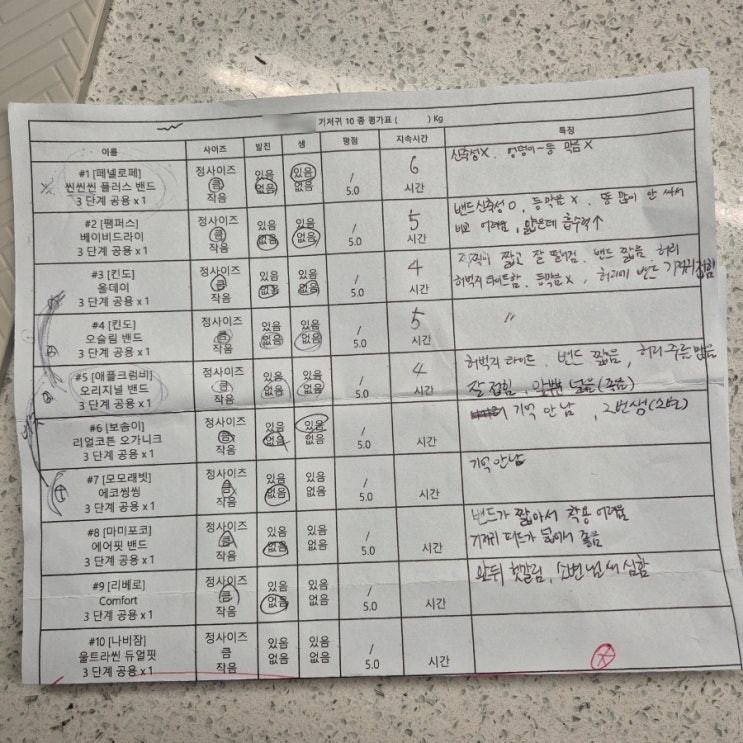 기저귀 10 종 평가표 ( ) Kg
이름 사이즈 발진 샘 평점 지속시간 특징
#1 [페넬로페]
씬씬씬 플러스 밴드
3 단계 공용 x 1
정사이즈
큼
작음
있음
없음
있음
없음
/
5.0
6
시간
신축성X, 엉덩이~등 막음X
#2 [팸퍼스]
베이비드라이
3 단계 공용 x 1
정사이즈
큼
작음
있음
없음
있음
없음
/
5.0
5
시간
밴드신축성 O, 등막음 X, 똥 많이 안 싸서
비교 어려움, 얇은데 흡수력↑
#3 [킨도]
올데이
3 단계 공용 x 1
정사이즈
큼
작음
있음
없음
있음
없음
/
5.0
4
시간
짧고 잘 떨어짐. 밴드 짧음, 허리
허벅지 타이트함, 등막음 X, 허리에 밴드 접힘
#4 [킨도]
오슬림 밴드
3 단계 공용 x 1
정사이즈
큼
작음
있음
없음
있음
없음
/
5.0
5
시간
〃
#5 [애플크럼비]
오리지널 밴드
3 단계 공용 x 1
정사이즈
큼
작음
있음
없음
있음
없음
/
5.0
4
시간
허벅지 타이트. 밴드 짧음, 허리 주름 많음
잘 접힘, 넓음(좋음)
#6 [보솜이]
리얼코튼 오가니크
3 단계 공용 x 1
정사이즈
큼
작음
있음
없음
있음
없음
/
5.0
시간
기억 안 남, 2번샘(소변)
#7 [모모래빗]
에코씽씽
3 단계 공용 x 1
정사이즈
큼
작음
있음
없음
있음
없음
/
5.0
시간
기억안남
#8 [마미포코]
에어핏 밴드
3 단계 공용 x 1
정사이즈
큼
작음
있음
없음
있음
없음
/
5.0
시간
밴드가 짧아서 착용 어려움
기저귀 패드가 넓어서 좋음
#9 [리베로]
Comfort
3 단계 공용 x 1
정사이즈
큼
작음
있음
없음
있음
없음
/
5.0
시간
앞뒤 헷갈림, 소변 냄새 심함
#10 [나비잠]
울트라씬 듀얼핏
3 단계 공용 x 1
정사이즈
큼
작음
있음
없음
있음
없음
/
5.0
시간